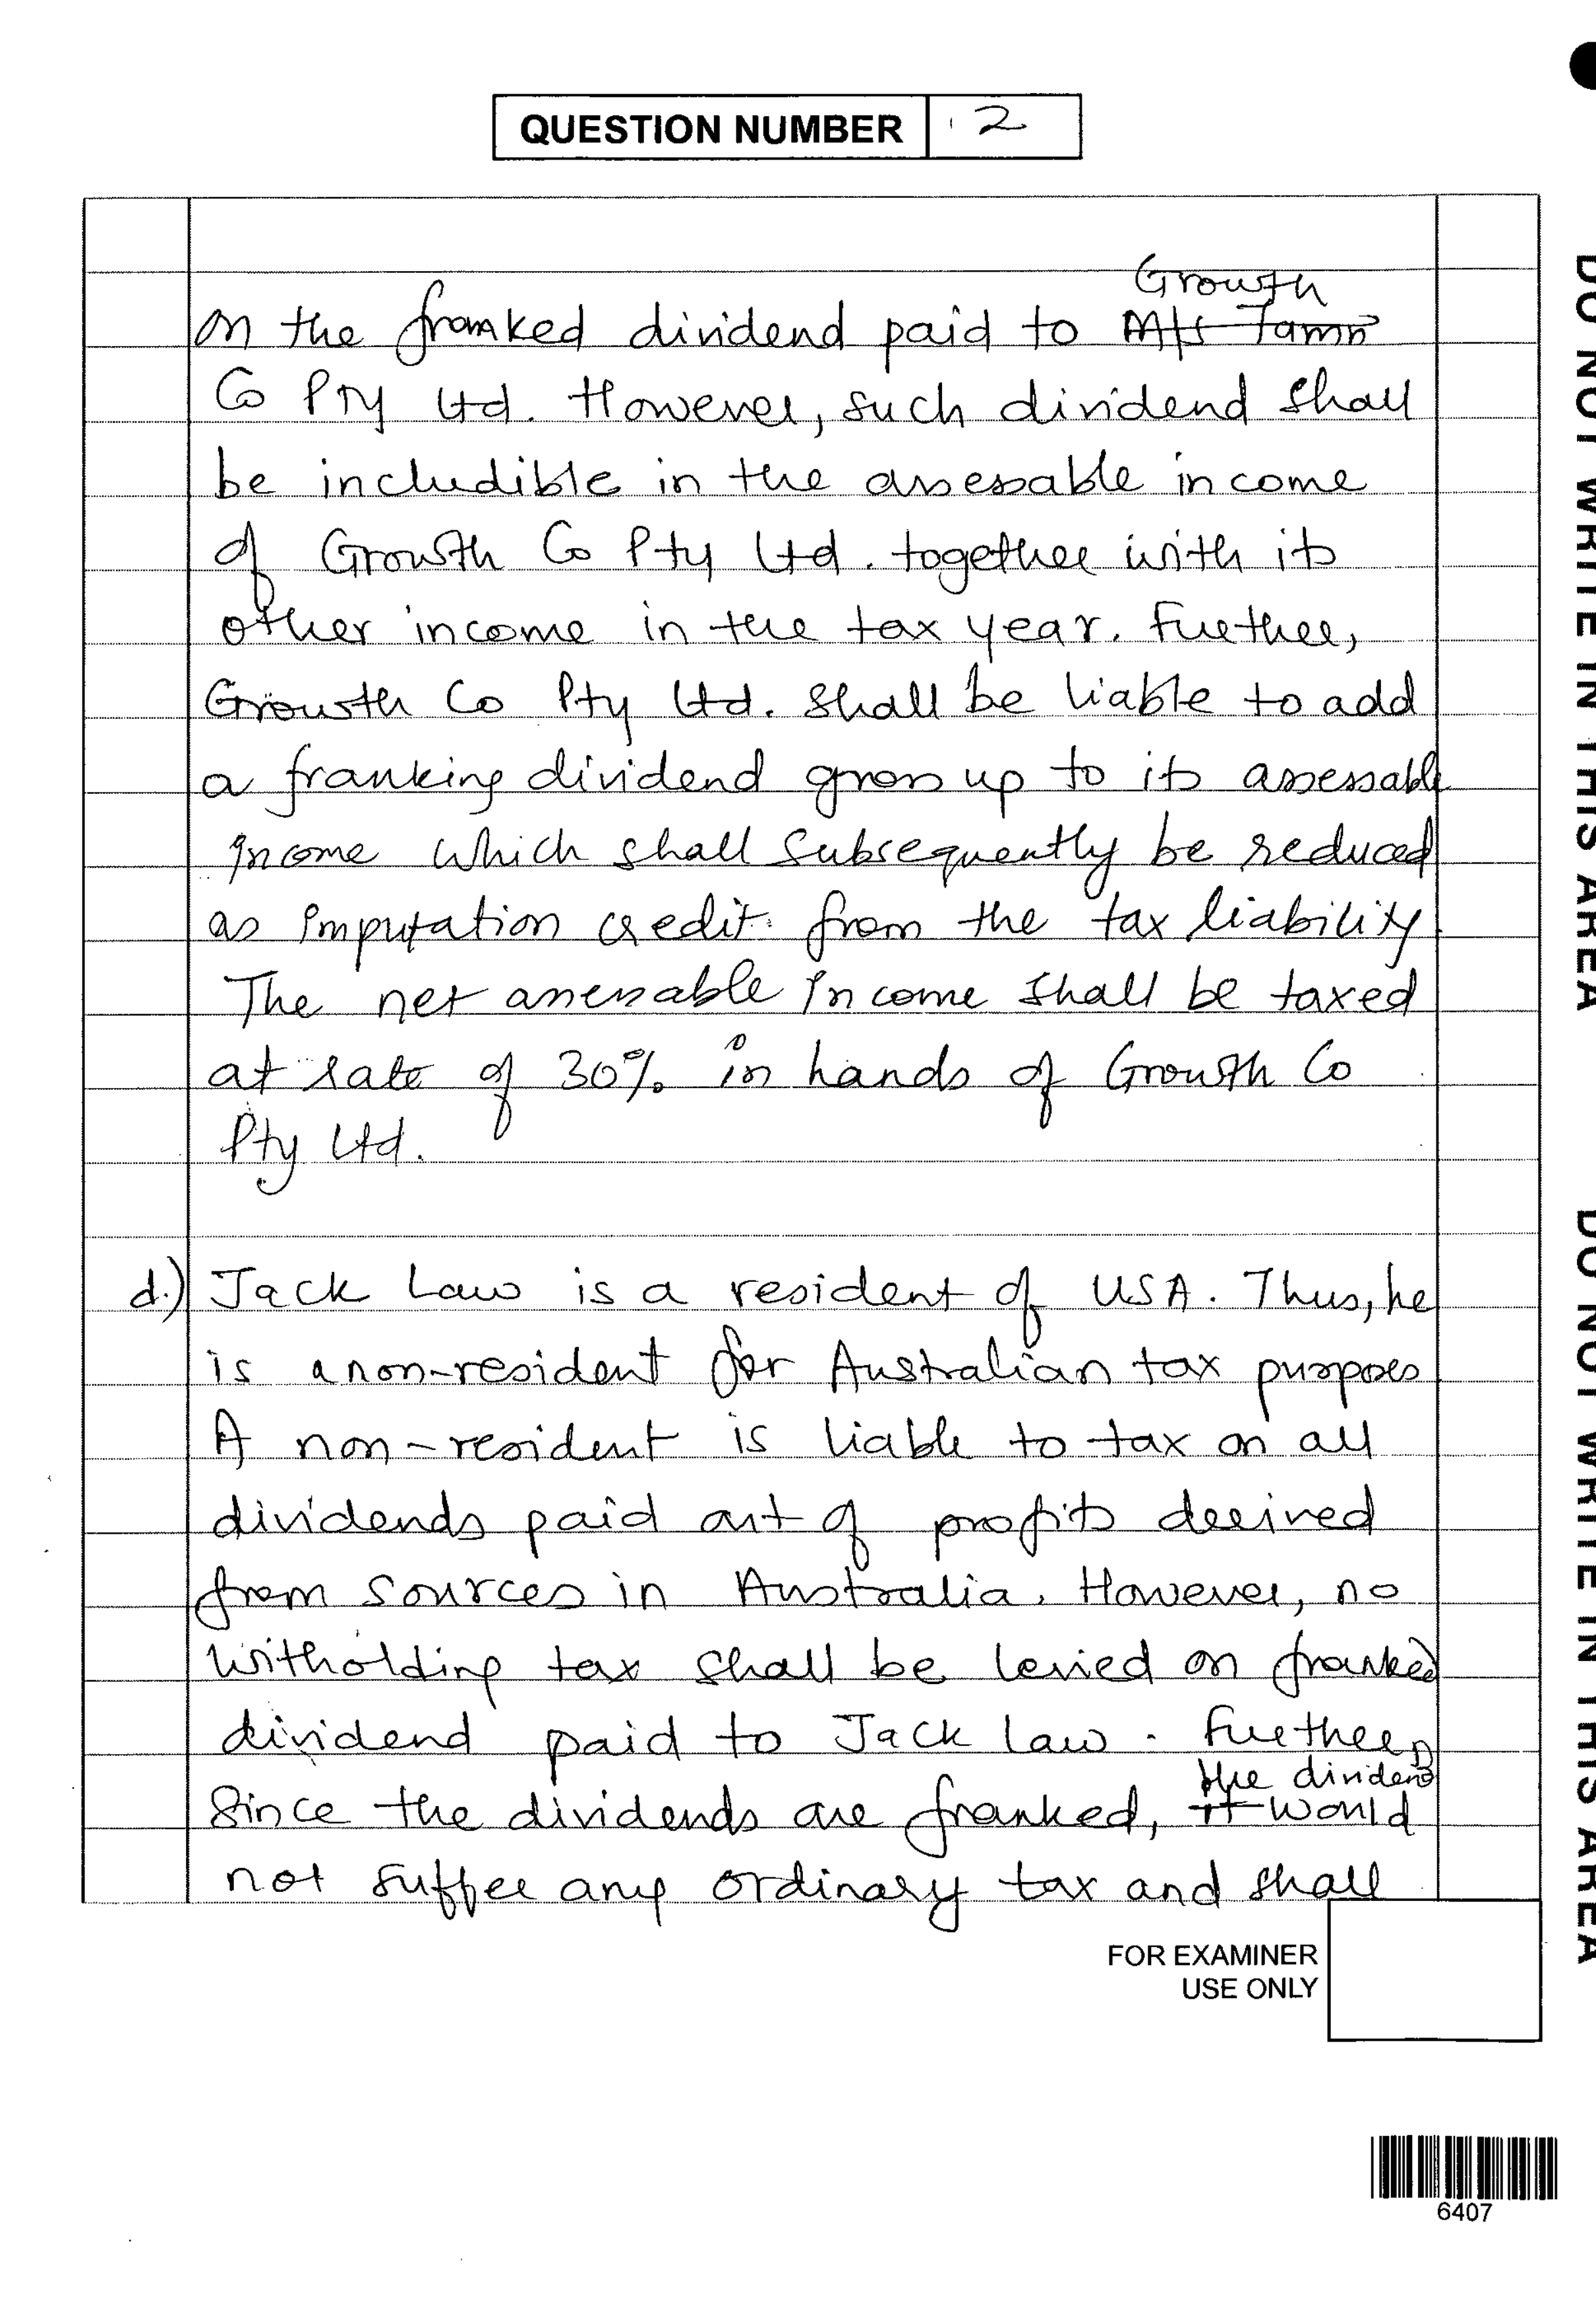 QUESTION NUMBER 2
Growth
on the franked dividend paid to M/s Tamn
Co Pty Ltd. However, such dividend shall
be includible in the assessable income
of Growth Co Pty Ltd. together with its
other income in the tax year. Further,
Growth Co Pty Ltd. shall be liable to add
a franking dividend gross up to its assessable
income which shall subsequently be reduced
as imputation credit from the tax liability.
The net assessable income shall be taxed
at rate of 30% in hands of Growth Co
Pty Ltd.
d.) Jack Law is a resident of USA. Thus, he
is a non-resident for Australian tax purposes
A non-resident is liable to tax on all
dividends paid out of profits derived
from sources in Australia. However, no
witholding tax shall be levied on franked
dividend paid to Jack Law. Further,
the dividend
Since the dividends are franked, it would
not suffer any ordinary tax and shall
FOR EXAMINER
USE ONLY
6407
DO NOT WRITE IN THIS AREA
DO NOT WRITE IN THIS AREA